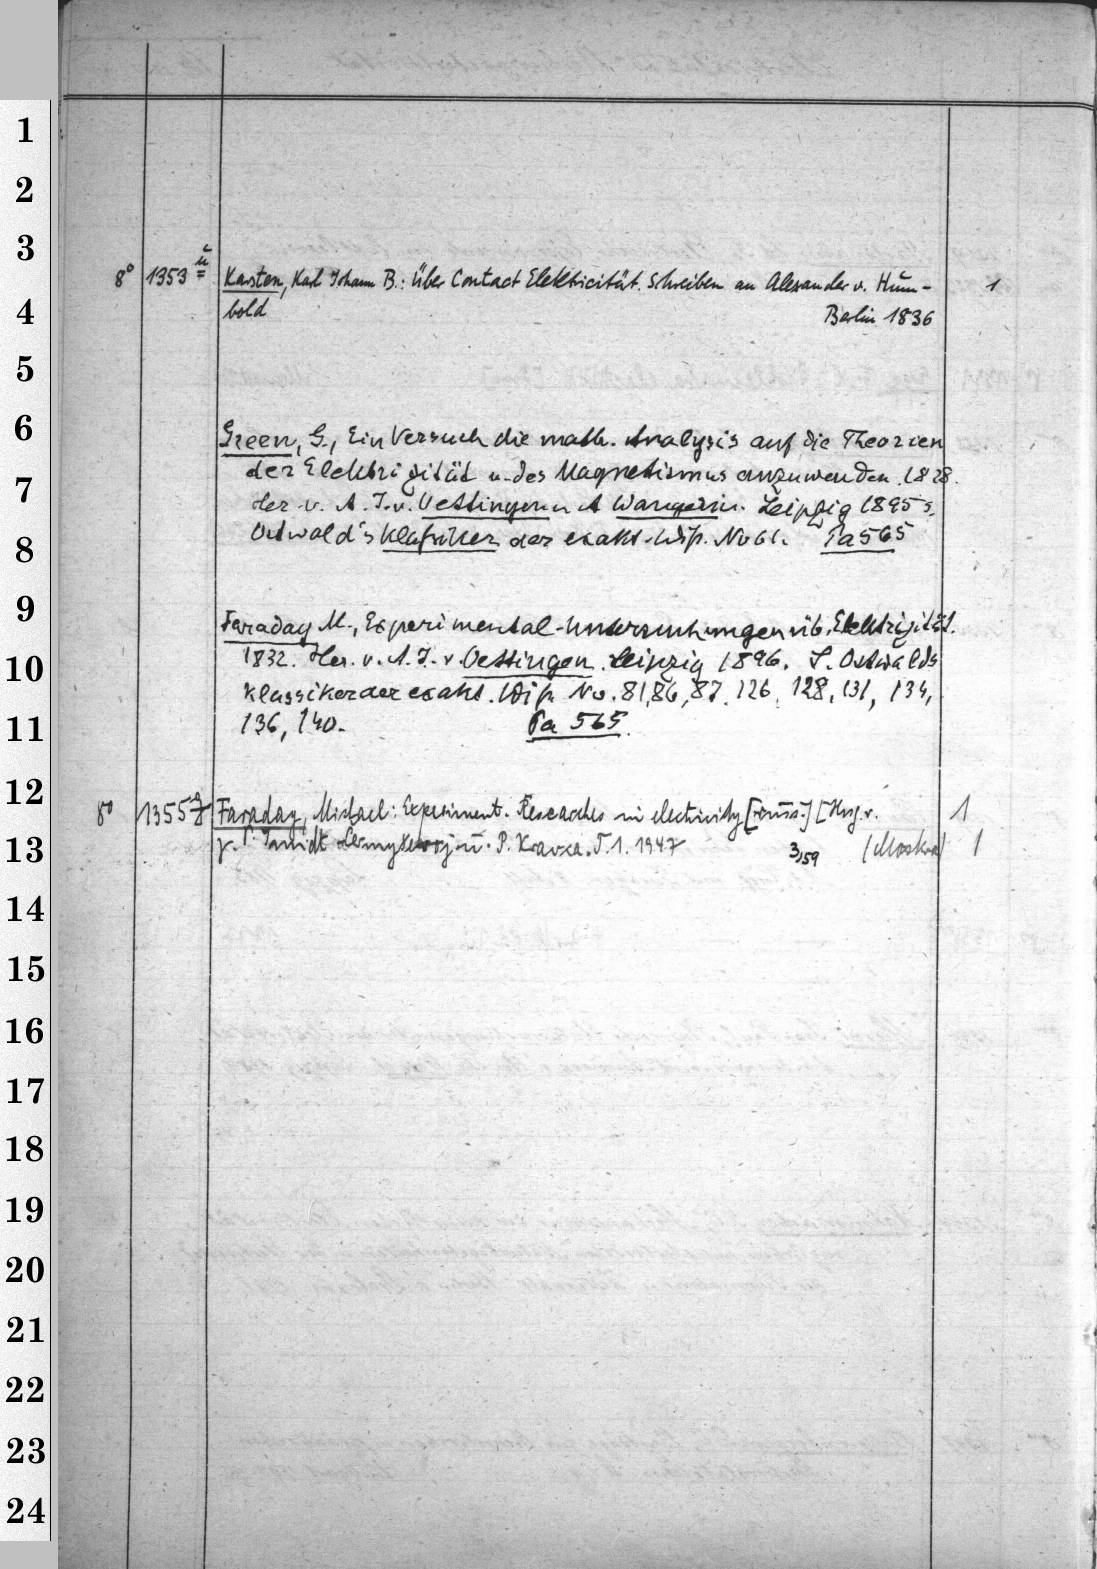 1
2
3
8° 1353 ü Karsten, Karl Johann B.: Über Contact Elektricität. Schreiben an Alexander v. Hum- 1
4
bold Berlin 1836
5
6
Green, G., Ein Versuch die math. Analysis auf die Theorien
der Elektrizität u. des Magnetismus anzuwenden. 1828.
7
Her. v. A. J. v. Oettingen u A Wangerin. Leipzig 1895 s.
8
Ostwald's Klassiker der exakt. Wiss. No 61. Pa 565
9
Faraday M., Experimental-Untersuchungen üb. Elektrizität.
10
1832. Her. v. A. J. v. Oettingen. Leipzig 1896. S. Ostwalds
Klassiker der exakt. Wiss. No. 81, 86, 87, 126, 128, 131, 134,
11
136, 140. Pa 565.
12
8° 1355 Faraday, Michael: Experiment. Researches in electricity [russ.] [Hrsg. v. 1
13
P. Kravca. T. 1. 1947 3/59 (Moskva) 1
14
15
16
17
18
19
20
21
22
23
24